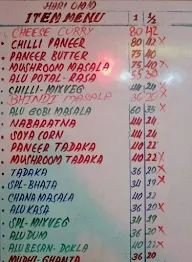 HARI OM
ITEM MENU 1 ½
CHEESE CURRY 80 42
CHILLI PANEER 80 42 x
PANEER BUTTER 75 40
MUSHROOM MASALA 75 40 x
ALU POTAL-RASA 55 30
CHILLI-MIXVEG 44 24 x
BHINDI MASALA 36 20 x
ALU GOBI MASALA 60 35 x
NABARATNA 44 24
SOYA CORN 44 24
PANEER TADAKA 44 24
MUSHROOM TADAKA 40 22 x
TADAKA 36 20 x
SPL-BHAJA 34 19
CHANA MASALA 40 22
ALU KASA 36 20 x
SPL-MIXVEG 34 19
ALU DUM 36 20 x
ALU BESAN-DOKLA 40 22 x
MUDHI-GHANTA 36 20